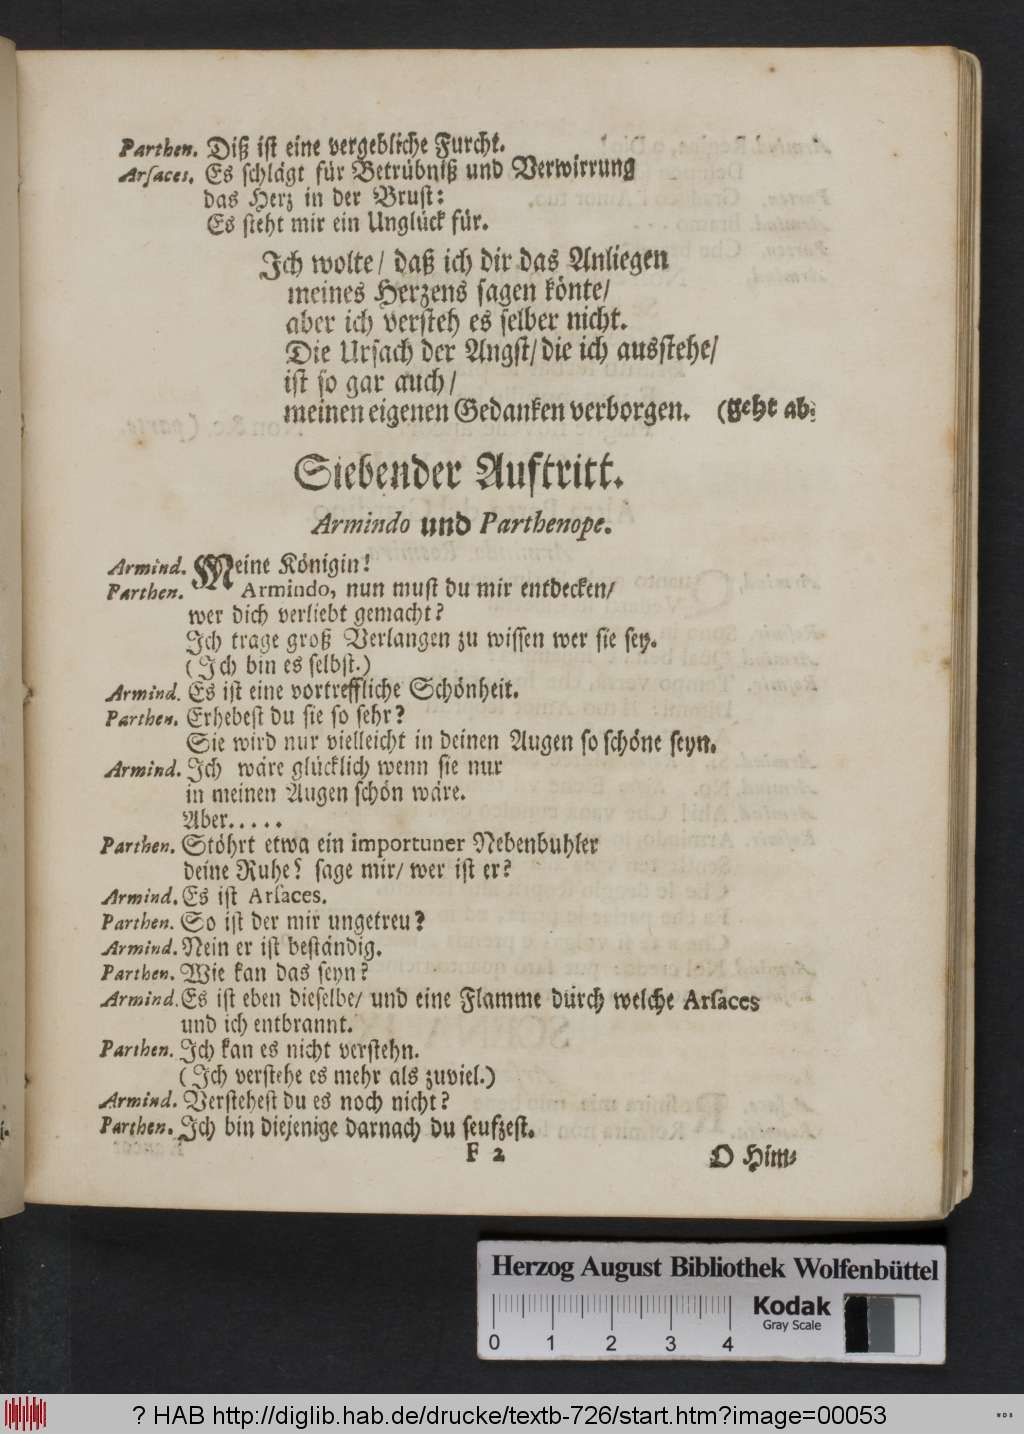 Parthen. Diß ist eine vergebliche Furcht.
Arsaces. Es schlägt für Betrübniß und Verwirrung
das Herz in der Brust:
Es steht mir ein Unglück für.
Ich wolte/ daß ich dir das Anliegen
meines Herzens sagen könte/
aber ich versteh es selber nicht.
Die Ursach der Angst/ die ich ausstehe/
ist so gar auch/
meinen eigenen Gedanken verborgen. (geht ab.
Siebender Auftritt.
Armindo und Parthenope.
Armind. Meine Königin!
Parthen. Armindo, nun must du mir entdecken/
wer dich verliebt gemacht?
Ich trage groß Verlangen zu wissen wer sie sey.
(Ich bin es selbst.)
Armind. Es ist eine vortreffliche Schönheit.
Parthen. Erhebest du sie so sehr?
Sie wird nur vielleicht in deinen Augen so schöne seyn.
Armind. Ich wäre glücklich wenn sie nur
in meinen Augen schön wäre.
Aber.....
Parthen. Stöhrt etwa ein importuner Nebenbuhler
deine Ruhe? sage mir/ wer ist er?
Armind. Es ist Arsaces.
Parthen. So ist der mir ungetreu?
Armind. Nein er ist beständig.
Parthen. Wie kan das seyn?
Armind. Es ist eben dieselbe/ und eine Flamme durch welche Arsaces
und ich entbrannt.
Parthen. Ich kan es nicht verstehn.
(Ich verstehe es mehr als zuviel.)
Armind. Verstehest du es noch nicht?
Parthen. Ich bin diejenige darnach du seufzest.
F 2 O Him-
Herzog August Bibliothek Wolfenbüttel
Kodak
Gray Scale
0 1 2 3 4
? HAB http://diglib.hab.de/drucke/textb-726/start.htm?image=00053